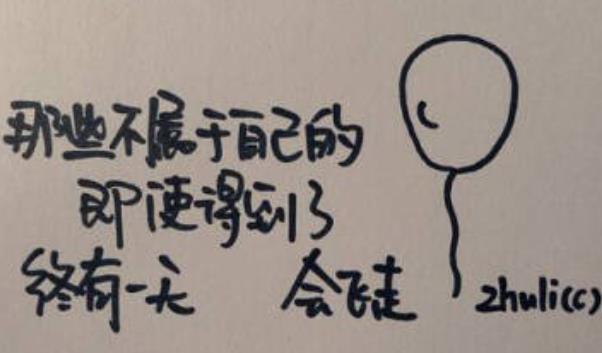 那些不属于自己的
即使得到了
终有一天 会飞走
zhuli(c)